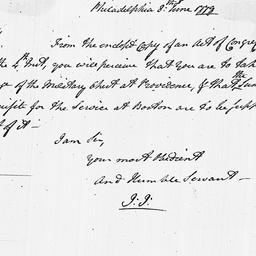 Philadelphia 8.th June 1779
From the enclosd Copy of an Act of Congre
he 4.th Inst, you will perceive that you are to tak
ge of the Military Chest at Providence, & that
the
for the Service at Boston are to be supp
t of it—
I am Sir,
Your most Obedient
And Humble Servant—
J: J: